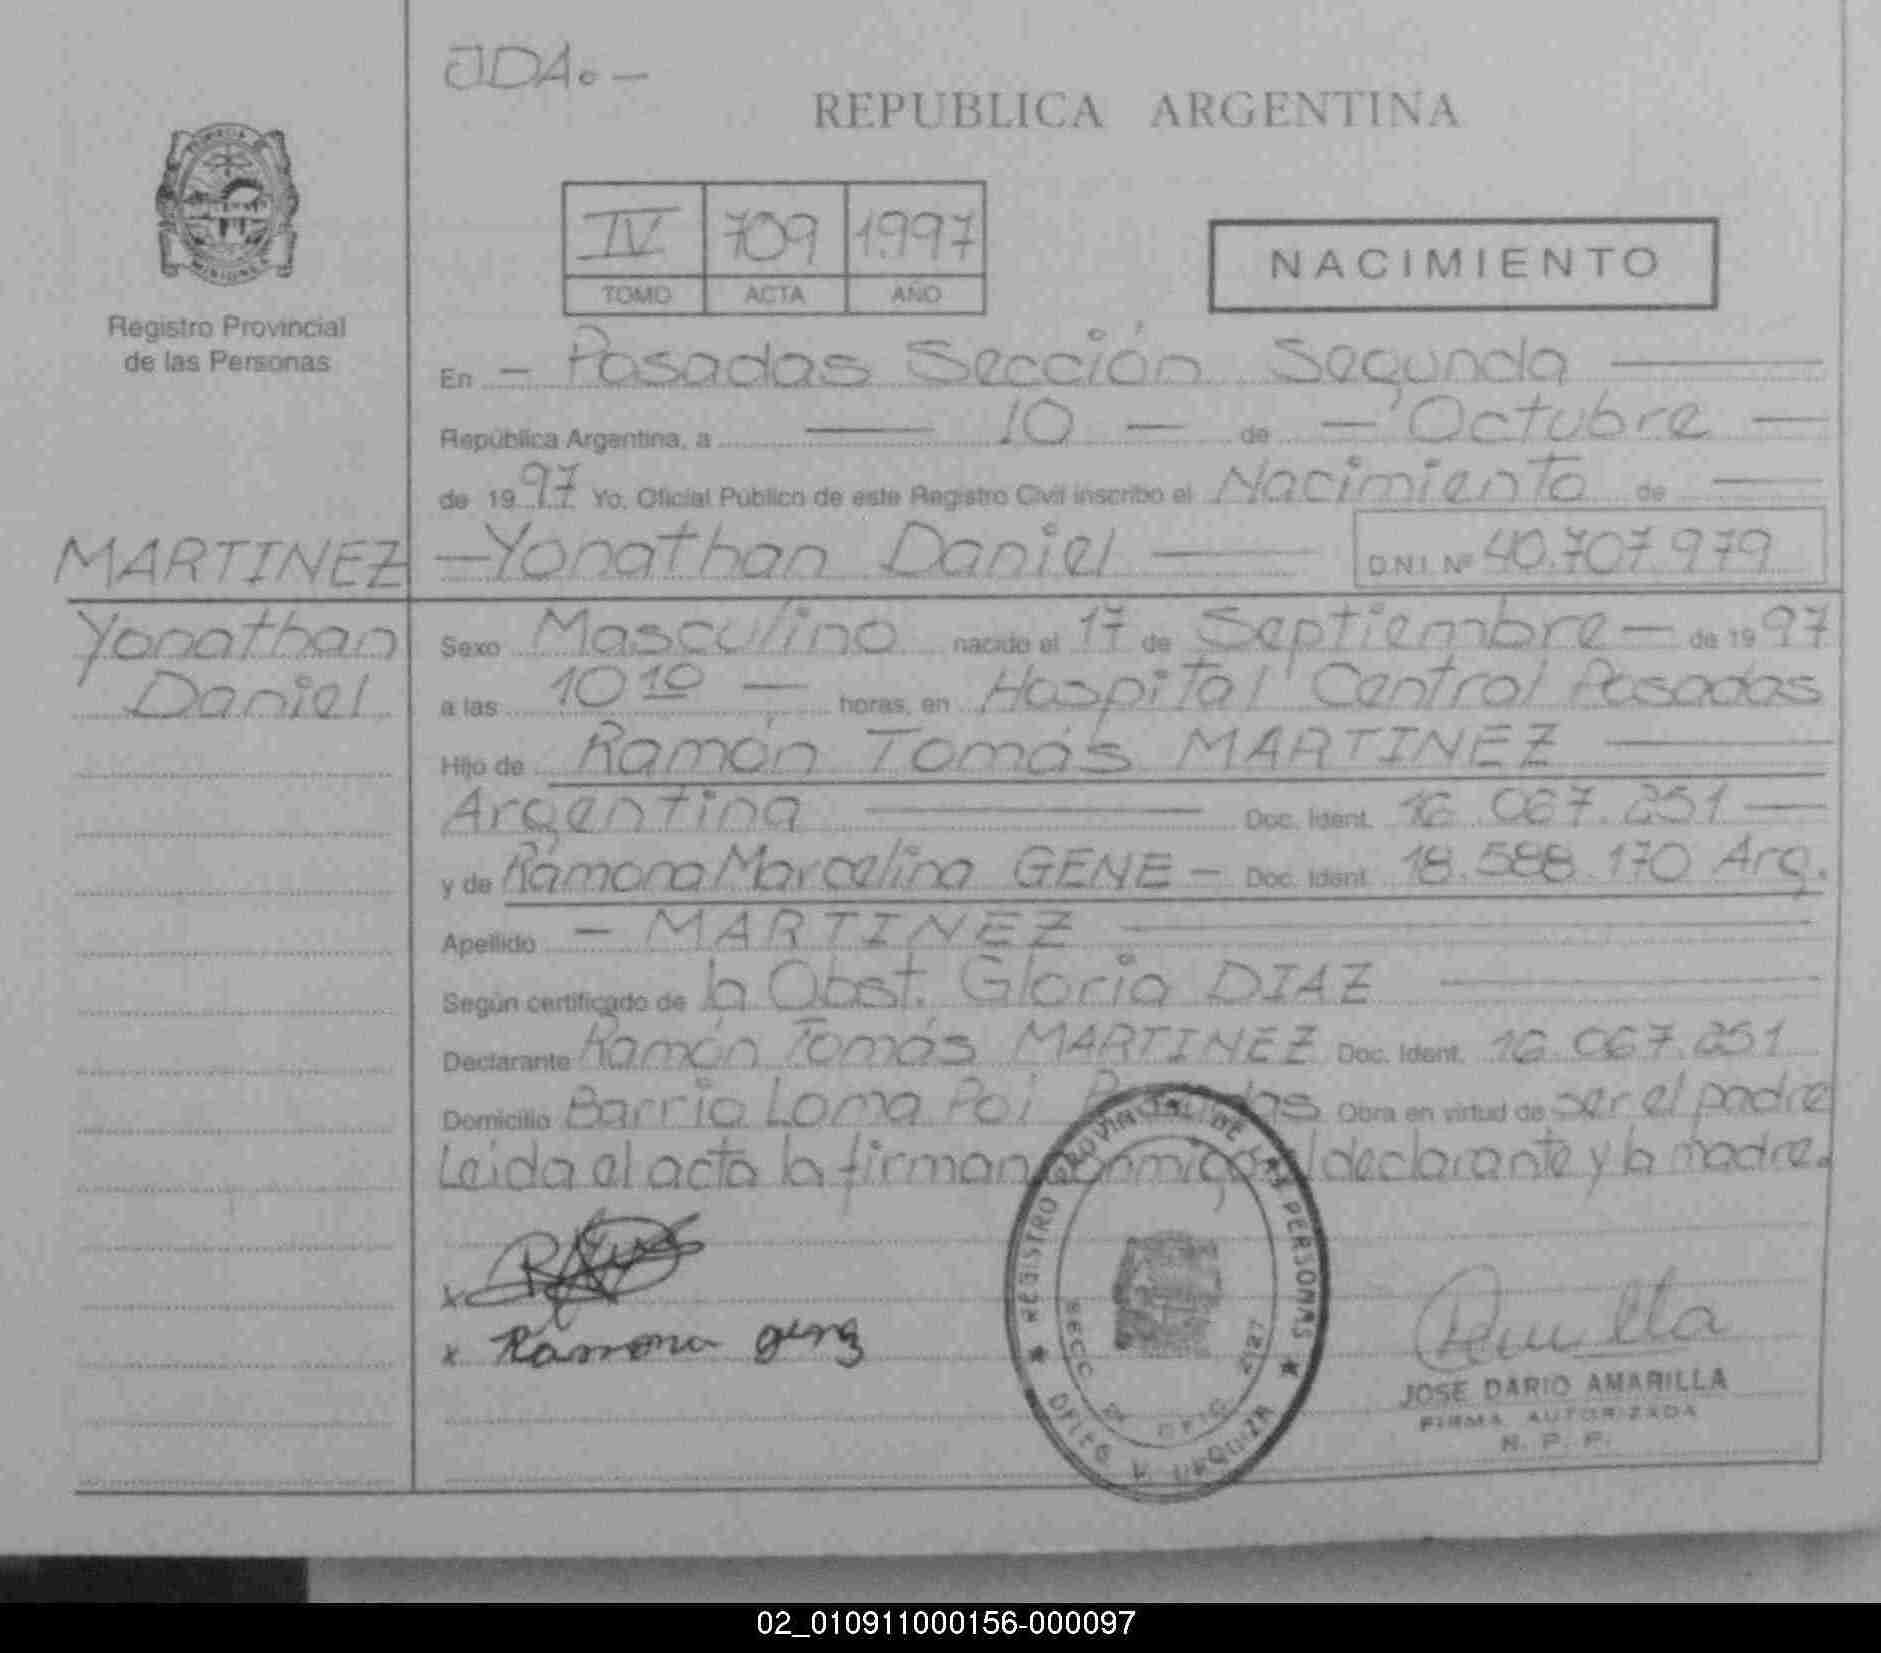 JDA.-
REPUBLICA ARGENTINA
IV 709 1997
TOMO ACTA AÑO
NACIMIENTO
Registro Provincial
de las Personas
En - Posadas Sección Segunda
República Argentina, a 10 - de - Octubre
de 1997 Yo, Oficial Público de este Registro Civil inscribo el Nacimiento de
MARTINEZ
Yonathan
Daniel
Yonathan Daniel D.N.I. Nº 40.707.979
Sexo Masculino nacido el 17 de Septiembre - de 1997
a las 10 10 - horas, en Hospital Central Posadas
Hijo de Ramón Tomás MARTINEZ
Argentina Doc. Ident. 16.067.251
y de Ramona Marcelina GENE - Doc. Ident. 18.588.170 Arg.
Apellido - MARTINEZ
Según certificado de la Obst. Gloria DIAZ
Declarante Ramón Tomás MARTINEZ Doc. Ident. 16.067.251
Domicilio Barrio Loma Poi Posadas Obra en virtud de ser el padre
Leida el acta la firman conmigo el declarante y la madre.
x
x Ramona
REGISTRO PROVINCIAL DE LAS PERSONAS
JOSE DARIO AMARILLA
FIRMA AUTORIZADA
R. P. P.
02_010911000156-000097